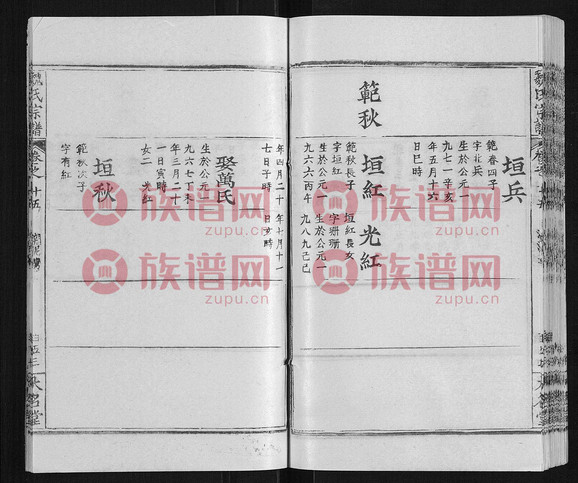 魏氏宗譜
垣兵
範春四子
字北兵
生於公元一
九七一辛亥
年五月十六
日巳時
範秋
垣紅
範秋長子
字垣紅
生於公元一
九六六丙午
光紅
垣紅長女
字珊珊
生於公元一
九八九己巳
年四月二十
七日子時
年七月十一
日亥時
娶萬氏
生於公元一
九六七丁未
年三月二十
一日寅時
女二 光紅
垣秋
範秋次子
字有紅
魏氏宗譜
卷之廿五
族谱网
zupu.cn
族谱网
zupu.cn
族谱网
zupu.cn
族谱网
zupu.cn